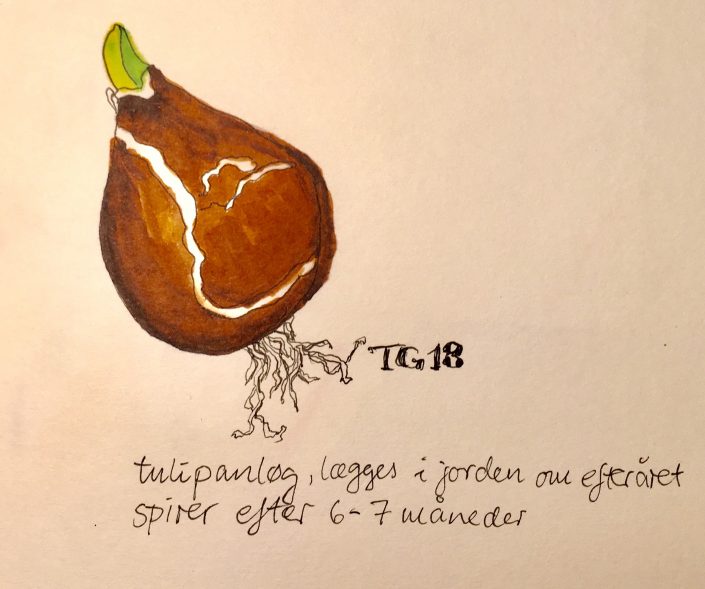 TG18
tulipanløg, lægges i jorden om efteråret
spirer efter 6-7 måneder